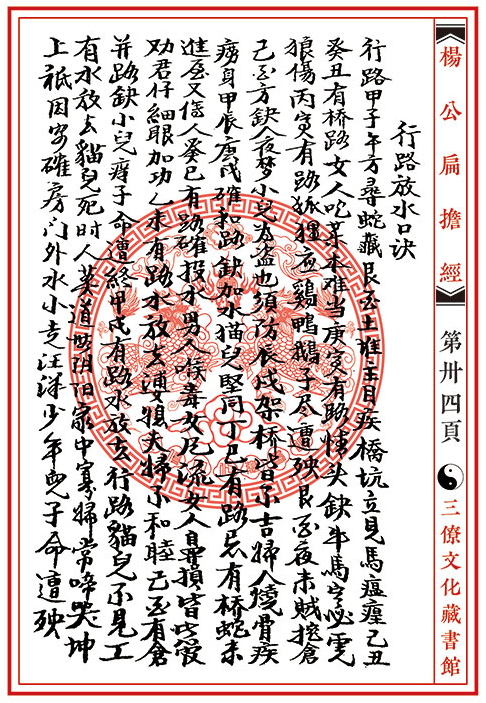 行路放水口诀
行路甲子午方尋蛇藏艮亥土堆主目疾橋坑立見馬瘟瘴己丑
癸丑有桥路女人吃菜本难当庚寅有路怪头缺牛馬定必虎
狼傷丙寅有路狐狸应鷄鴨鵝子尽遭殃艮亥夜来賊挖倉
己亥方缺人夜梦小兒為盗也須防辰戌架桥皆不吉婦人燒骨疾
癆身甲辰庚戌確和路缺加水猫兒堅同丁巳有路忌有桥蛇未
進屋又傷人癸巳有路確投水男人喉毒女凡流女人身損皆皆發
劝君仔細眼加功乙未有路水放去連損夫婦不和睦己亥有倉
并路缺小兒痒子命遭終甲戌有路水放去行路貓兒不見工
有水放去貓兒死时人莫道世阴阳家中寡婦常啼哭坤
上祇因安確房门外水小走汪洋少年兒子命遭殃
楊公扁擔經
第卅四頁
三僚文化藏書館